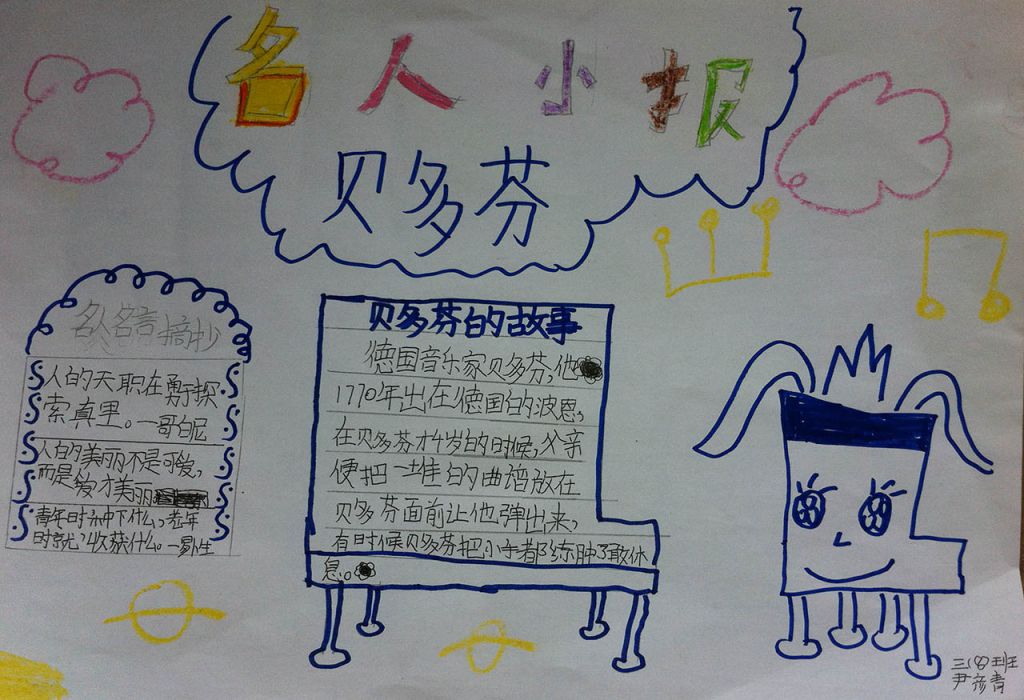 名人小报
贝多芬
名人名言摘抄
人的天职在勇于探
索真里。一哥白尼
人的美丽不是可爱,
而是爱才美丽
青年时种下什么,老年
时就收获什么。一易卜生
贝多芬的故事
德国音乐家贝多芬,他
1770年出在德国的波恩,
在贝多芬才4岁的时候,父亲
便把一堆的曲谱放在
贝多芬面前让他弹出来,
有时候贝多芬把小手都练肿了敢休
息。
班
尹彦青